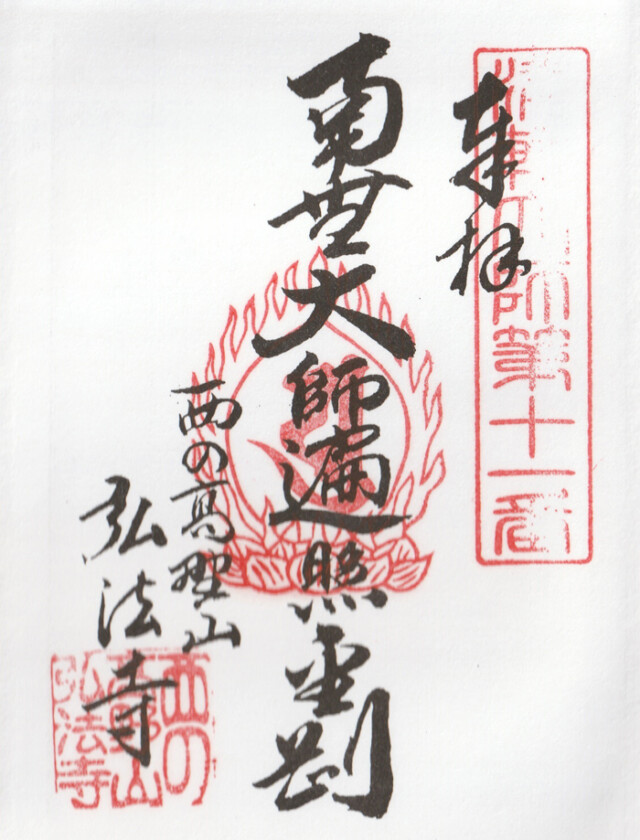 師第十一番
奉拝
南無大師遍照金剛
西の高野山
弘法寺
西の
高野山
弘法寺